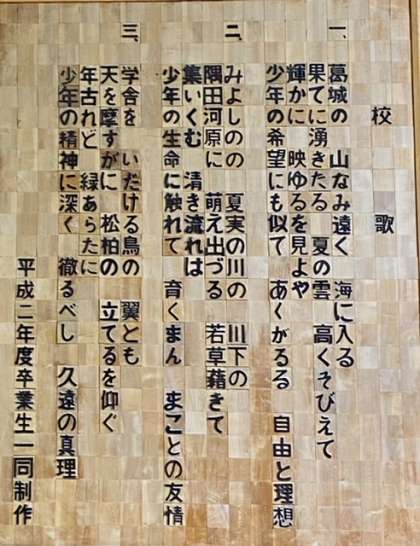 校歌
一、
葛城の 山なみ遠く 海に入る
果てに湧きたる 夏の雲 高くそびえて
輝かに 映ゆるを見よや
少年の希望にも似て あくがるる 自由と理想
二、
みよしのの 夏実の川の 川下の
隅田河原に 萌え出づる 若草藉きて
集いくむ 清き流れは
少年の生命に触れて 育くまん まことの友情
三、
学舎を いだける鳥の 翼とも
天を摩すがに 松柏の 立てるを仰ぐ
年古れど 緑あらたに
少年の精神に深く 徹るべし 久遠の真理
平成二年度卒業生一同制作